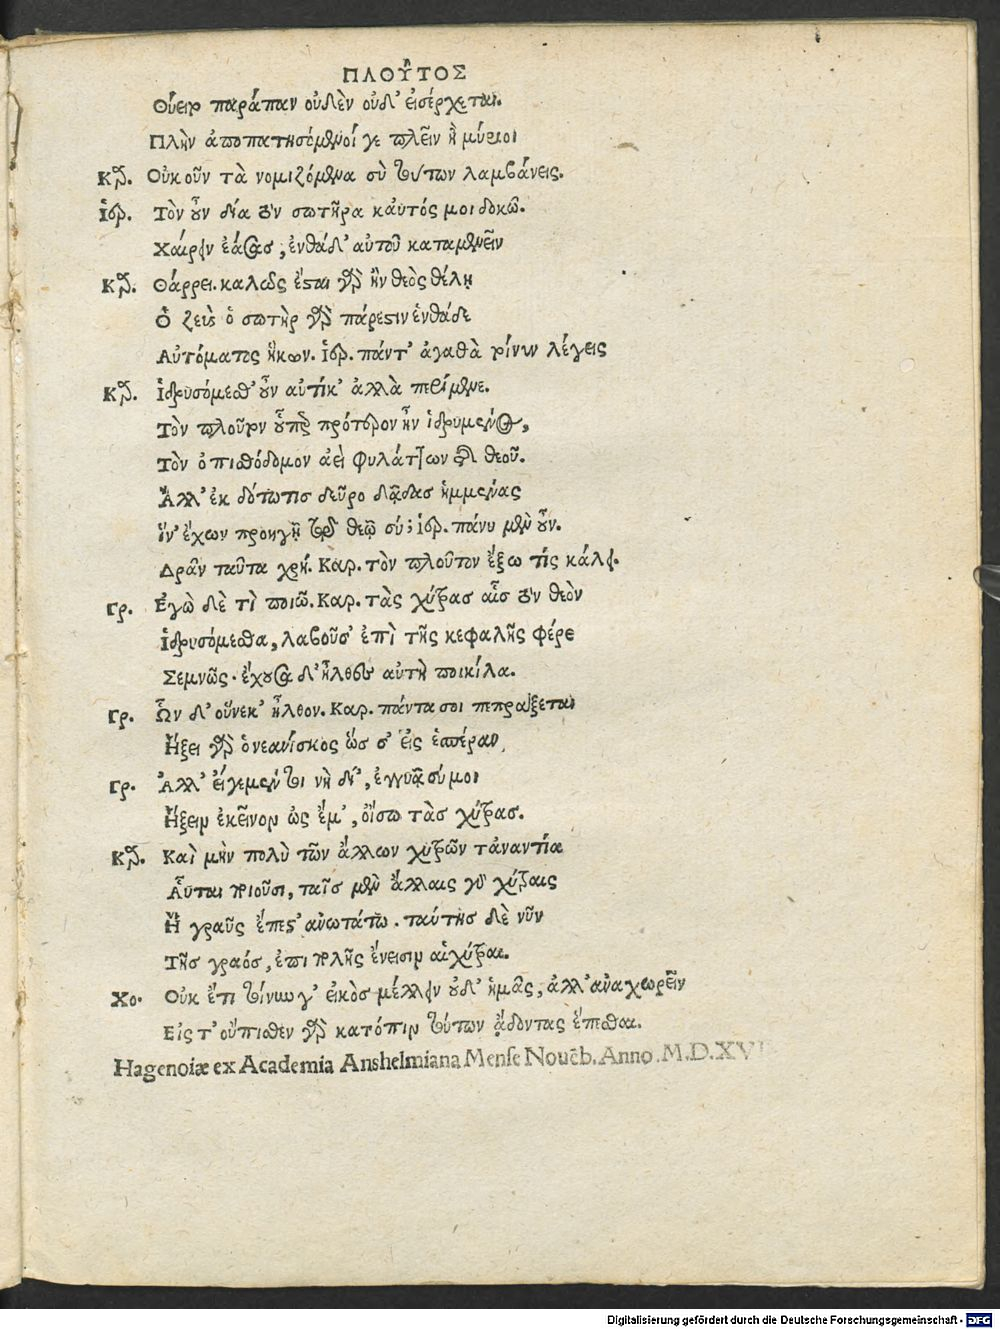 ΠΛΟΥ͂ΤΟΣ
Θύειν παράπαν οὐδὲν οὐδ' εἰσέρχεται.
Πλὴν ἀποπατησόμενοί γε πλεῖν ἢ μύριοι
Καρ. Οὐκοῦν τὰ νομιζόμενα σὺ τούτων λαμβάνεις.
Ἱερ. Τὸν οὖν δία τὸν σωτῆρα καὐτός μοι δοκῶ.
Χαίρειν ἐάσας, ἐνθάδ' αὐτοῦ καταμενεῖν
Καρ. Θάρρει. καλῶς ἔσται γὰρ ἢν θεὸς θέλῃ
Ὁ ζεὺς ὁ σωτὴρ γὰρ πάρεστιν ἐνθάδε
Αὐτόματος ἥκων. Ἱερ. πάντ' ἀγαθὰ τοίνυν λέγεις
Καρ. Ἱδρυσόμεσθ' οὖν αὐτίκ' ἀλλὰ περίμενε.
Τὸν πλοῦτον οὗπερ πρότερον ἦν ἱδρυμένος,
Τὸν ὀπισθόδομον ἀεὶ φυλάττων τῆς θεοῦ.
Ἀλλ' ἐκ δότω τις δεῦρο δᾷδας ἡμμένας
ἵν' ἔχων προηγῇ τῷ θεῷ σύ; ἱερ. πάνυ μὲν οὖν.
Δρᾶν ταῦτα χρή. Καρ. τὸν πλοῦτον ἔξω τίς κάλει.
Γρ. Ἐγὼ δὲ τὶ ποιῶ. Καρ. τὰς χύτρας αἷς τὸν θεὸν
Ἱδρυσόμεσθα, λαβοῦσ' ἐπὶ τῆς κεφαλῆς φέρε
Σεμνῶς. ἔχουσα δ' ἦλθες αὐτὴ ποικίλα.
Γρ. Ὧν δ' οὕνεκ' ἦλθον. Καρ. πάντα σοι πεπράξεται
Ἥξει γὰρ ὁ νεανίσκος ὥς σ' εἰς ἑσπέραν,
Γρ. Ἀλλ' εἴγε μέντοι νὴ δί', ἐγγυᾷ σύ μοι
Ἥξειν ἐκεῖνον ὡς ἔμ', οἴσω τὰς χύτρας.
Καρ. Καὶ μὴν πολὺ τῶν ἄλλων χυτρῶν τἀναντία
Αὗται ποιοῦσι, ταῖς μὲν ἄλλαις γὰρ χύτραις
Ἡ γραῦς ἔπεστ' ἀνωτάτω. ταύτης δὲ νῦν
Τῆς γραός, ἐπιπολῆς ἔνεισιν αἱ χύτραι.
Χο. Οὐκ ἔτι τοίνυν γ' εἰκὸς μέλλειν οὐδ' ἡμᾶς, ἀλλ' ἀναχωρεῖν
Εἰς τ' οὔπισθεν γὰρ κατόπιν τούτων ᾄδοντας ἕπεσθαι.
Hagenoiæ ex Academia Anshelmiana Mense Nouẽb. Anno. M.D.XVI
Digitalisierung gefördert durch die Deutsche Forschungsgemeinschaft - DFG